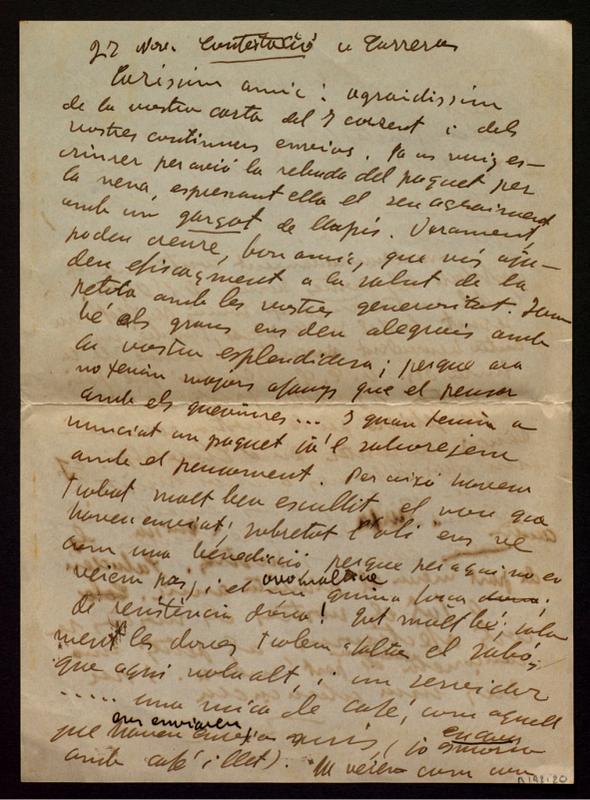 27 Nov. Contestació a Carreras
Caríssim amic: agraidissim
de la vostra carta del 7 corrent i dels
vostres continuus envios. Ja us vaig es-
criurer per avió la rebuda del paquet per
la nena, expresant ella el seu agraiment
amb un gargot de llapis. Verament,
poden creure, bon amic, que vos aju-
den efisasment a la salut de la
petita amb les vostres generositat. Tam
bé els grans ens den alegrois amb
la vostra esplendidesa; perque ara
no tenim majors afanys que el pensar
amb els queviures... I quan tenim a
nunciat un paquet ja'l saborejem
amb el pensament. Per això havem
trobat molt ben escullit el nou que
haven enviat; sobretot l'oli ens ve
com una benedicció, perque per aqui no en
veiem pas; i el ovomaltine quina
de resistencia dóna! Yot molt bé; sola
ment les dones troben a faltar el sabó,
que aqui no val alt, i un servidor
..... una mica de café, com aquell
que haven ens enviaren a Paris, (jo encara
amb café i llet). Ja veieu com con
A.192.20